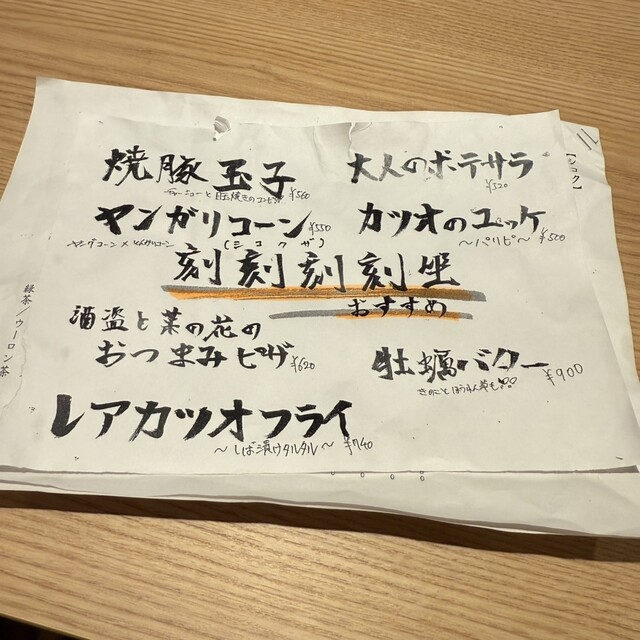 焼豚玉子
チャーシューと目玉焼きのコンビ ¥560
大人のポテサラ
¥520
ヤンガリコーン ¥550
ヤングコーン×とんがりコーン
カツオのユッケ
～パリピ～ ¥500
(シコクザ)
刻刻刻刻坐
おすすめ
酒盗と菜の花の
おつまみピザ ¥620
牡蠣バター ¥900
きのことほうれん草も!!
レアカツオフライ
～しば漬けタルタル～ ¥740
緑茶/ウーロン茶